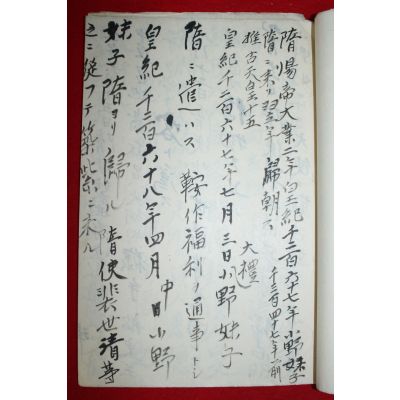 隋煬帝大業二年皇紀千二百六十七年小野妹子
隋ニ来リ翌年歸朝ス 千三百四十七年前
推古天皇十五
皇紀千二百六十七年七月三日大禮小野妹子
隋ニ遣ハス鞍作福利ノ通事トシ
皇紀千二百六十八年四月中日小野
妹子隋ヨリ歸ル隋使裴世清等
之ニ從フテ築紫ニ来ル